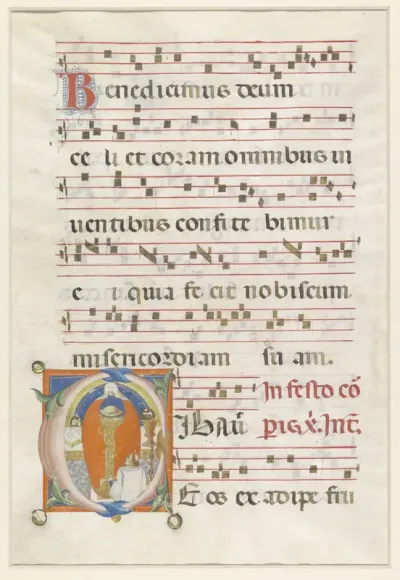 Benedicimus deum
ce li et coram omnibus ui
uentibus confite bimur
e i quia fe cit nobiscum
misericordiam su am.
In festo cō
Cibaūi
ꝑis x̄. Int̄.
E os ex adipe fru